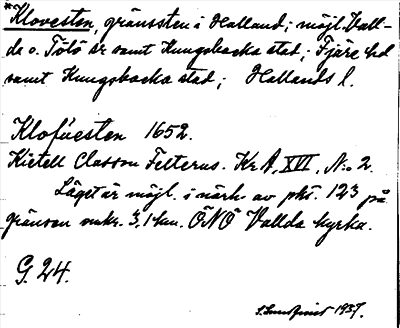 *Klovesten, gränssten i Halland; möjl. Vall-
da o. Tölö sr samt Kungsbacka stad; Fjäre hd
samt Kungsbacka stad; Hallands l.
Klofúesten 1652.
Kietell Classon Felterus. Kr. A, XVI, N:o 2.
Läget är möjl. i närh. av pkt. 123 på
gränsen omkr. 3,1 km. ÖNÖ Vallda kyrka.
G. 24.
S. Lundquist 1937.